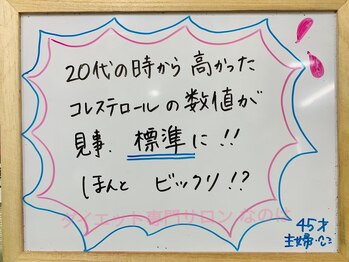 20代の時から高かった
コレステロールの数値が
見事、標準に!!
ほんと ビックリ!?
ダイエット専門サロン なのに
45才
主婦